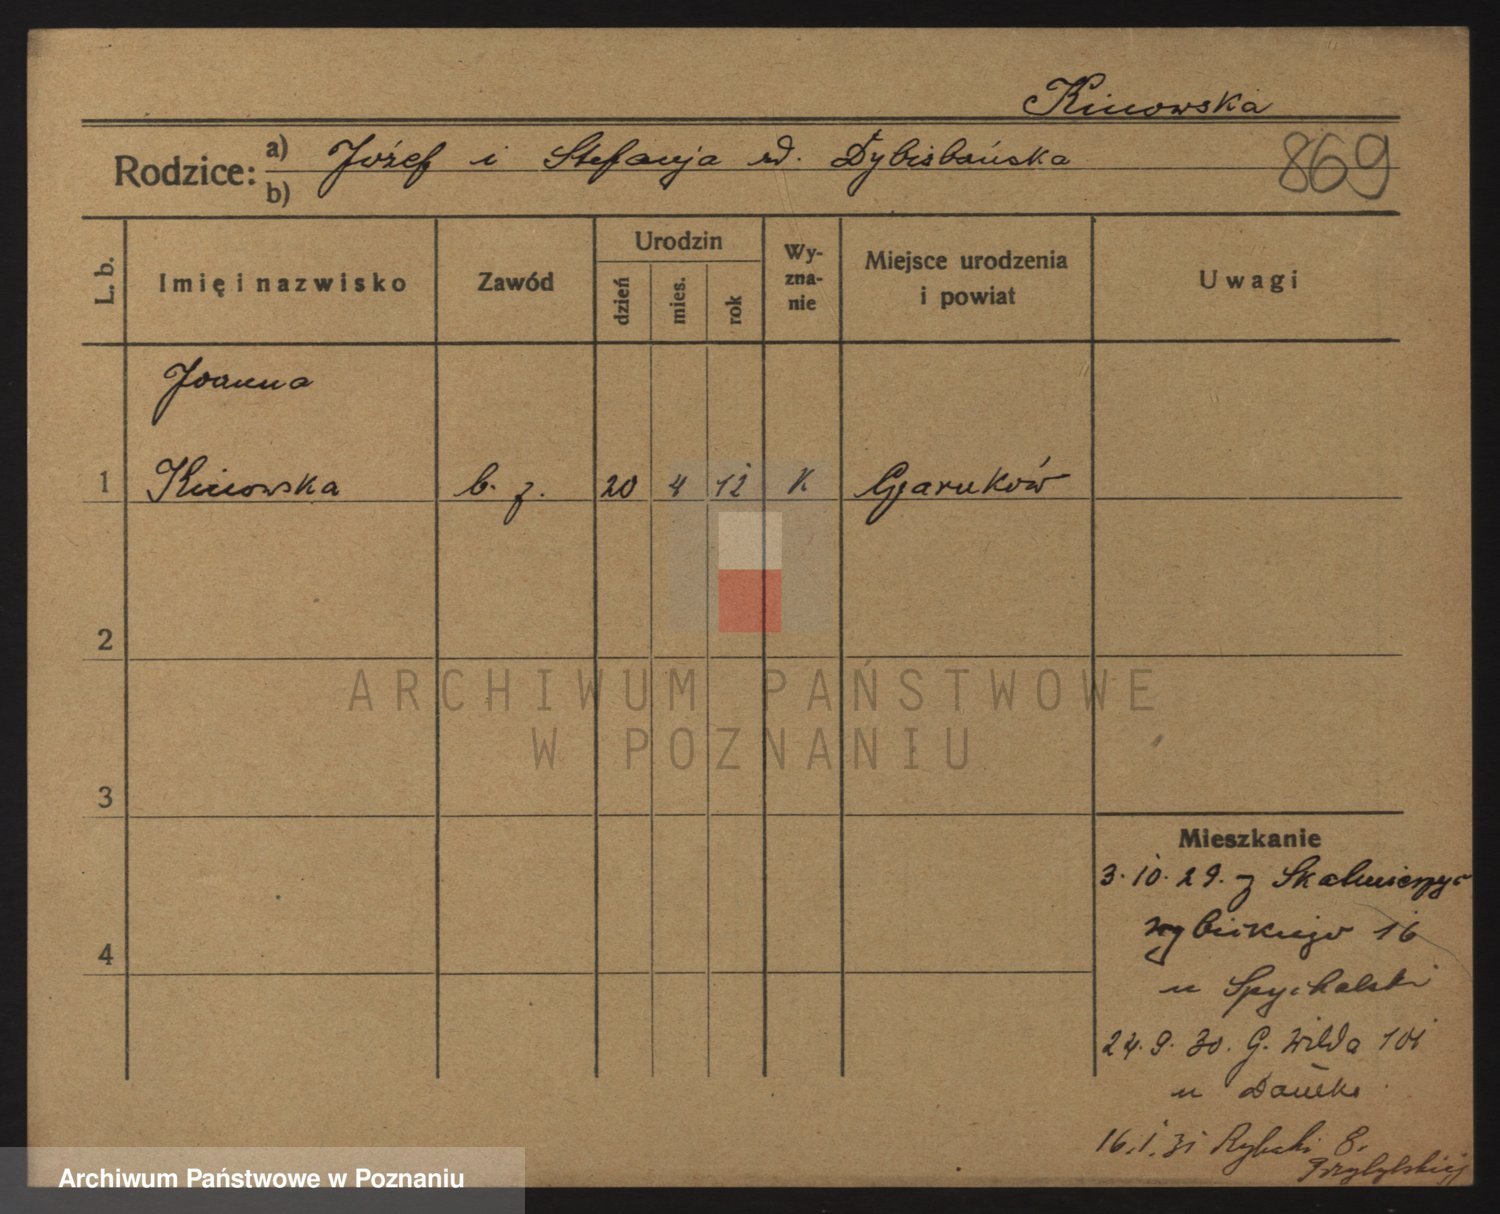 Kinowska
Rodzice: a) Józef i Stefanja rd. Dybisbańska
b)
869
L. b.
Imię i nazwisko
Zawód
Urodzin
dzień
mies.
rok
Wy-
zna-
nie
Miejsce urodzenia
i powiat
Uwagi
Joanna
1 Kinowska b. z. 20 4 12 K Czarnków
2
ARCHIWUM PAŃSTWOWE
W POZNANIU
3
Mieszkanie
3.10.29. z Skalmierzyc
4
16
u Spychalski
24.9.30. G. Wilda 101
u
16.1.31 Rybaki 8.
Przybylskiej
Archiwum Państwowe w Poznaniu